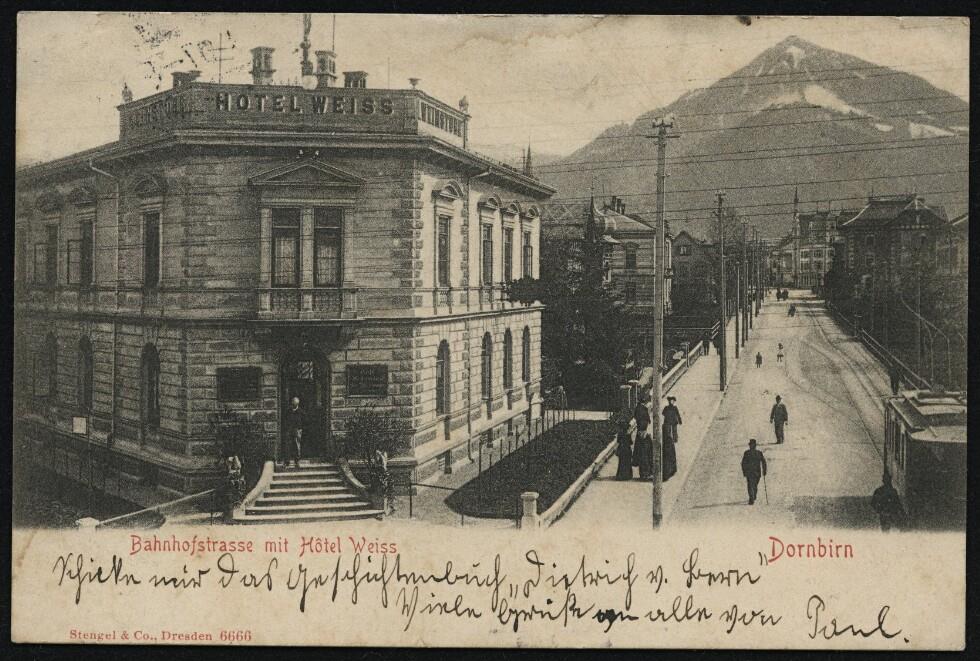 HOTEL WEISS
WEINSTUBE
Bahnhofstrasse mit Hôtel Weiss
Dornbirn
Schicke mir das Geschichtenbuch „Dietrich v. Bern"
Viele Grüße an alle von Paul.
Stengel & Co., Dresden 6666